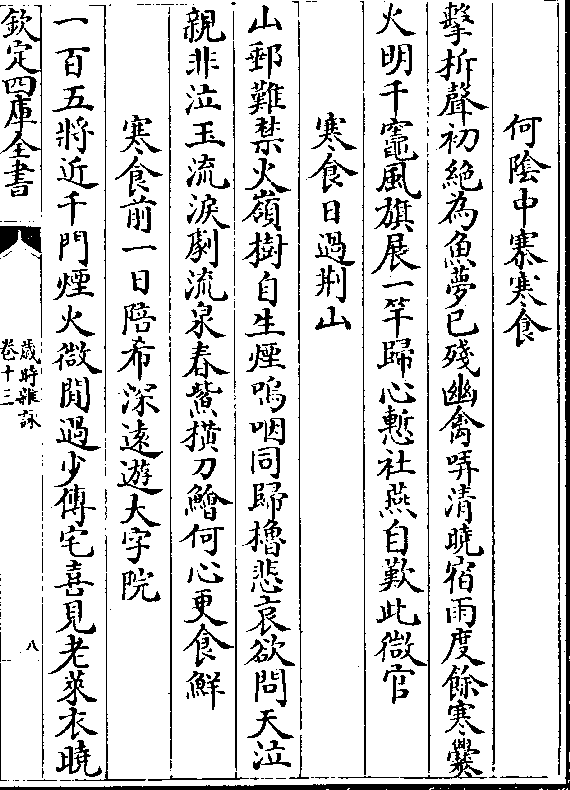 何陰中寨寒食
擊柝聲初絶為魚夢已殘幽禽哢清曉宿雨度餘寒爨
火明千竈風旗展一竿歸心慙社燕自歎此微官
寒食日過荆山
山郵難禁火嶺樹自生煙嗚咽同歸櫓悲哀欲問天泣
親非泣玉流淚劇流泉春鮆横刀鱠何心更食鮮
寒食前一日陪希深遠遊大字院
一百五將近千門煙火微閒過少傅宅喜見老萊衣曉
欽定四庫全書
歲時雜詠
卷十三
八